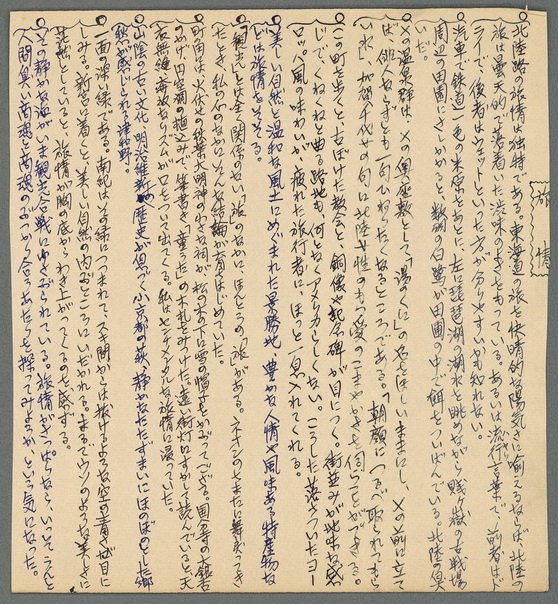 旅情
北陸路の旅情は独特である。東海道の旅を快晴的な陽気さに喩えるならば、北陸の
旅は曇天的で落着いた渋味のよさをもっている。あるいは流行言葉で、前者はド
ライで、後者はウェットといった方が分りやすいかも知れない。
汽車で鉄道一色の米原をあとに、左に琵琶湖の湖水を眺めながら賤ヶ嶽の古戦場
周辺の田園にさしかかると、数羽の白鷺が田圃の中で餌をついばんでいる。北陸の奥
いだ。
×の温泉群は、×の奥座敷として「湯くに」の名をほしいままにし、×の前に立て
ば、俳人ならずとも一句ひねりたくなるところである。「朝顔につるべ取られてもら
い水」加賀千代女の句に北陸女性のもつ愛のこまやかさを伺うことができる。
この町を歩くと、古ぼけた教会と、銅像や記念碑が目につく。街並みが地味な感
じで、くねくねと曲る路地も何となくアメリカらしくない。こうした落ちついたヨー
ロッパ風の味わいが、疲れた旅行者に、ほっと一息入れてくれる。
美しい自然と温和な風土にめぐまれた景勝地、豊かな人情や風味ある特産物な
どは旅情をそそる。
「観光」とは全く関係のない「旅」のなかに、ほんとうの「旅」がある。ネオンのちまたに舞いもどってき
たとき、私の心のなかにそんな結論が育ちはじめていた。
町角には火伏せの秋葉大明神の小さな祠が、松の木の下に雪の帽子をかぶってござる。国分寺の大銀杏
のかげ、円空洞の植込みで、筆書き「童うた」の木札をみつけた。遠い街灯にすかして読んでいると、天
衣無縫、奔放なリズムが口をついて出てくる。私はセンチメンタルな旅情に浸っていた。
山陰の古い文化、明治維新の歴史が息づく小京都の萩、静かなたたずまいにほのぼのとした郷
愁が感じられる津和野。
一面の深い緑である。南紀はその緑につつまれて、スキ間からは抜けるような空の青さが目に
しみる。新宮に着くと、美しい自然の内ぶところにいだかれる。まるでウソのような美しさに
茫然としていると、旅情が胸の底からわき上がってくるのを感ずる。
×その静かな海がいま観光合戦にゆさぶられている。旅情がさっぱりなら、いっそうんと
人間臭い商魂と商魂のぶつかり合うあたりを探ってみようか、という気になった。